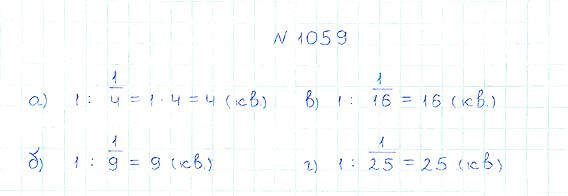 N 1059
а) 1 : 1/4 = 1 · 4 = 4 (кв.) в) 1 : 1/16 = 16 (кв.)
б) 1 : 1/9 = 9 (кв.) г) 1 : 1/25 = 25 (кв.)